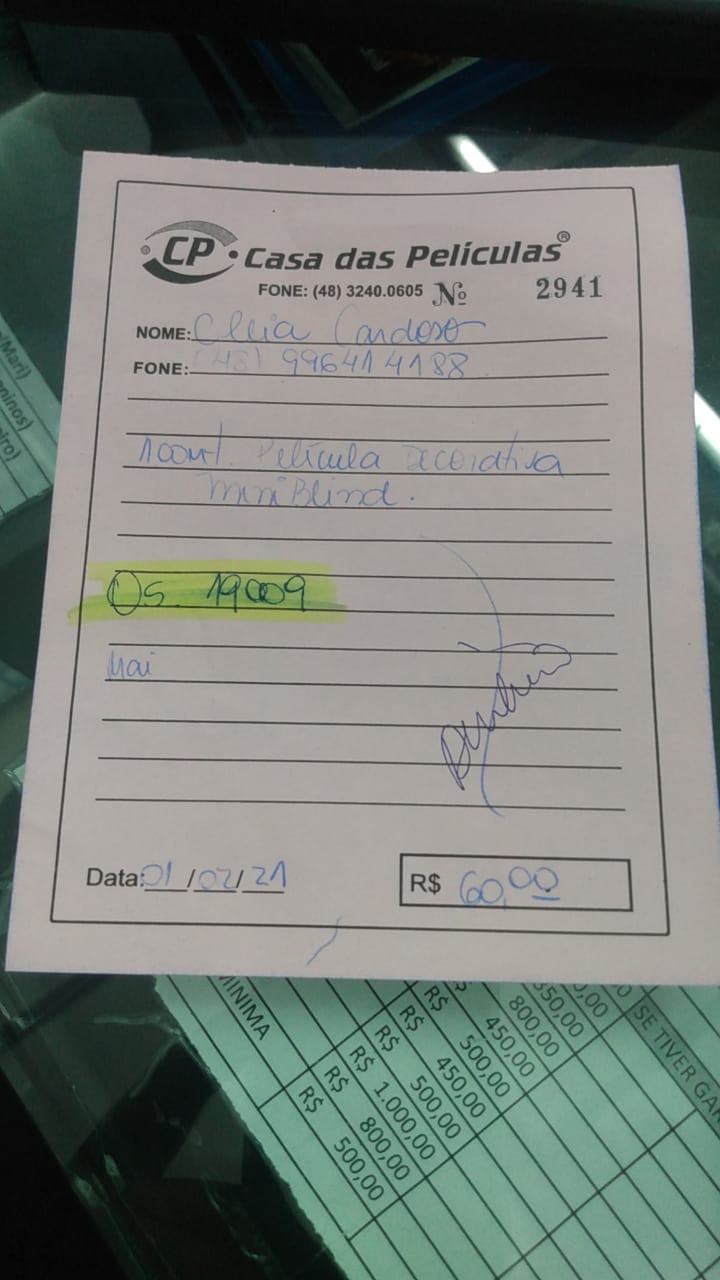 CP • Casa das Películas®
FONE: (48) 3240.0605 Nº 2941
NOME: Cleia Cardoso
FONE: (48) 99641 4188
100mt. Película Decorativa
Mini Blind.
OS. 19009
Mai
Data: 01/02/21
R$ 60,00
/Mari)
eninos)
eiro)
MINIMA
R$ 500,00
R$ 800,00
R$ 1.000,00
R$ 500,00
R$ 450,00
R$ 500,00
450,00
800,00
350,00
SE TIVER